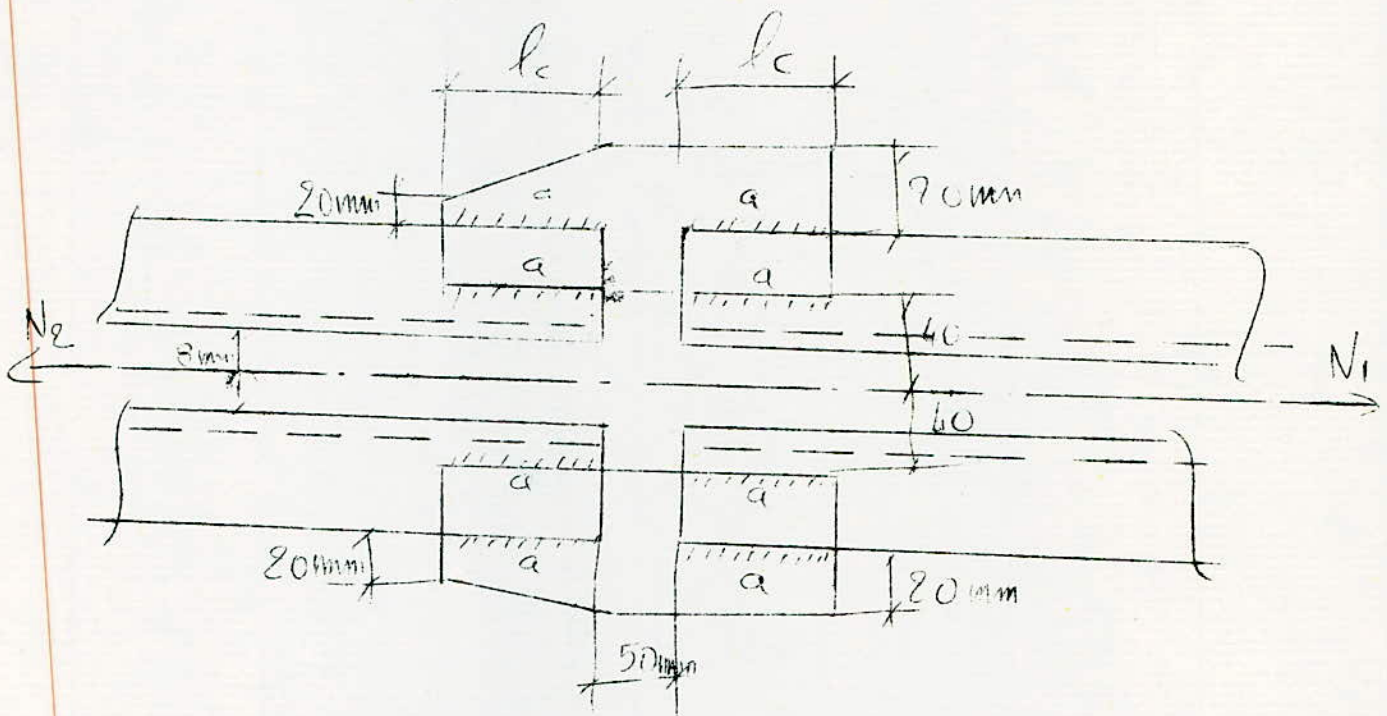 lc lc
20mm a a 20mm
a a
N2 8mm 40 N1
40
a a
20mm a a 20mm
50mm